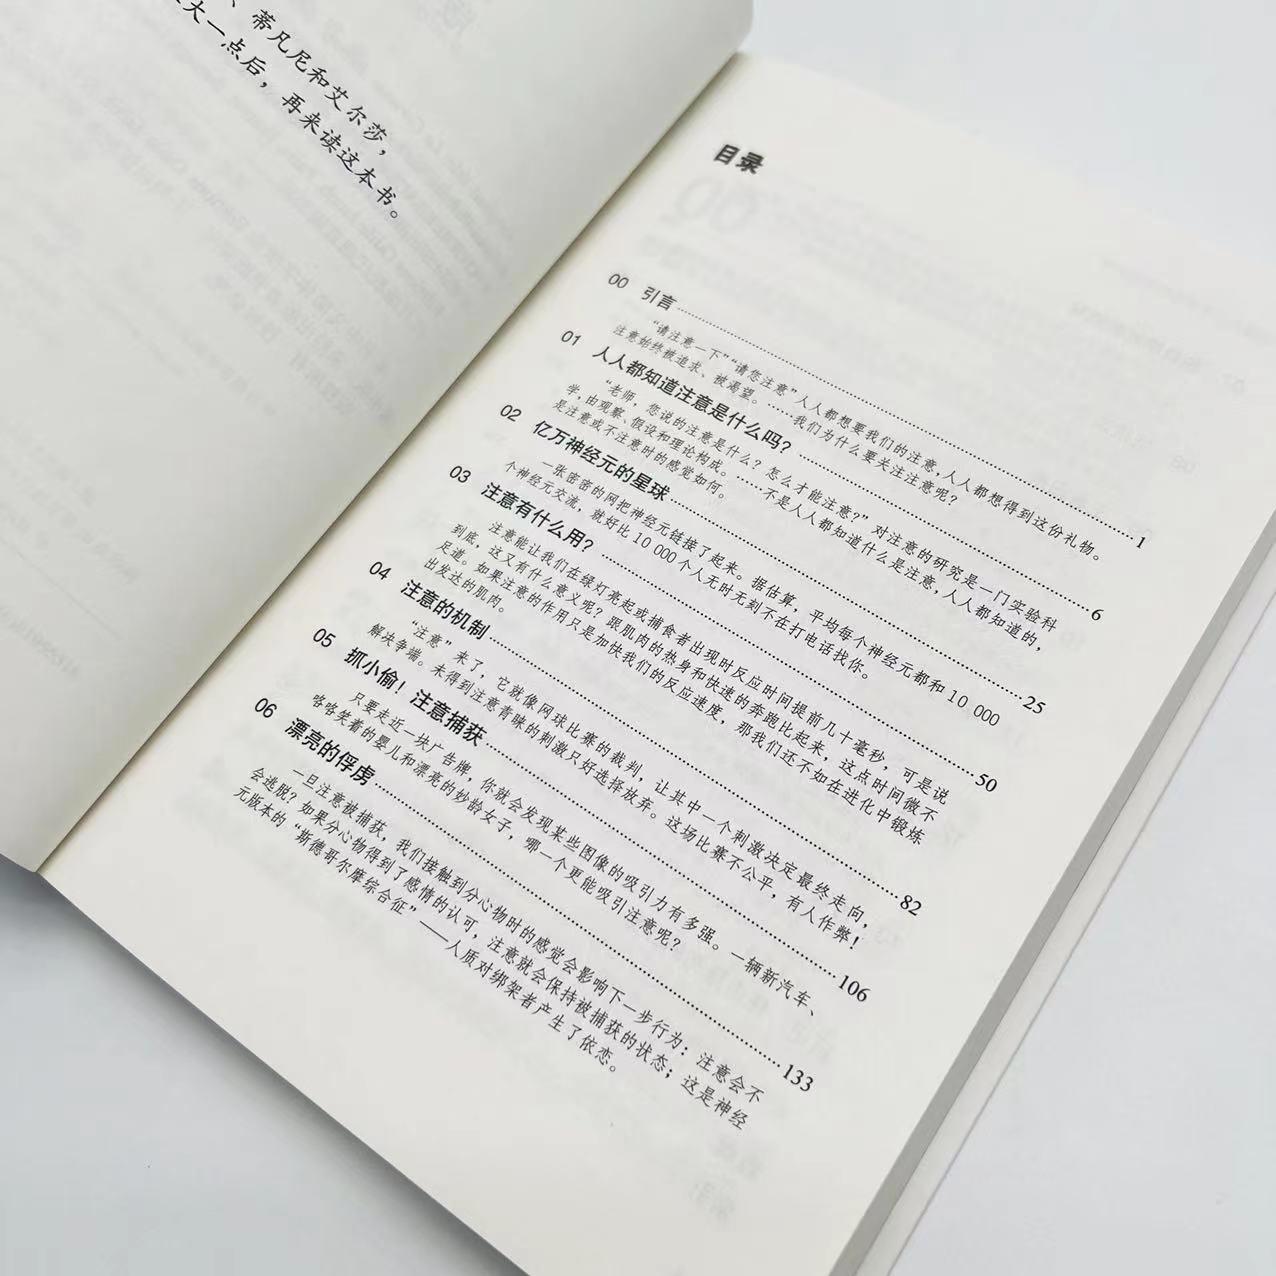 、蒂凡尼和艾尔莎，
大一点后，再来读这本书。
目录
00 引言 1
“请注意一下”“请您注意”人人都想要我们的注意，人人都想得到这份礼物。
注意始终被追求、被渴望。……我们为什么要关注注意呢？
01 人人都知道注意是什么吗？ 6
“老师，您说的注意是什么？怎么才能注意？”对注意的研究是一门实验科
学，由观察、假设和理论构成。……不是人人都知道什么是注意，人人都知道的，
是注意或不注意时的感觉如何。
02 亿万神经元的星球 25
一张密密的网把神经元链接了起来。据估算，平均每个神经元都和10 000
个神经元交流，就好比10 000个人无时无刻不在打电话找你。
03 注意有什么用？ 50
注意能让我们在绿灯亮起或捕食者出现时反应时间提前几十毫秒，可是说
到底，这又有什么意义呢？跟肌肉的热身和快速的奔跑比起来，这点时间微不
足道。如果注意的作用只是加快我们的反应速度，那我们还不如在进化中锻炼
出发达的肌肉。
04 注意的机制 82
“注意”来了，它就像网球比赛的裁判，让其中一个刺激决定最终走向，
解决争端。未得到注意青睐的刺激只好选择放弃。这场比赛不公平，有人作弊！
05 抓小偷！注意捕获 106
只要走近一块广告牌，你就会发现某些图像的吸引力有多强。一辆新汽车、
咯咯笑着的婴儿和漂亮的妙龄女子，哪一个更能吸引注意呢？
06 漂亮的俘虏 133
一旦注意被捕获，我们接触到分心物时的感觉会影响下一步行为：注意会不
会逃脱？如果分心物得到了感情的认可，注意就会保持被捕获的状态；这是神经
元版本的“斯德哥尔摩综合征”——人质对绑架者产生了依恋。